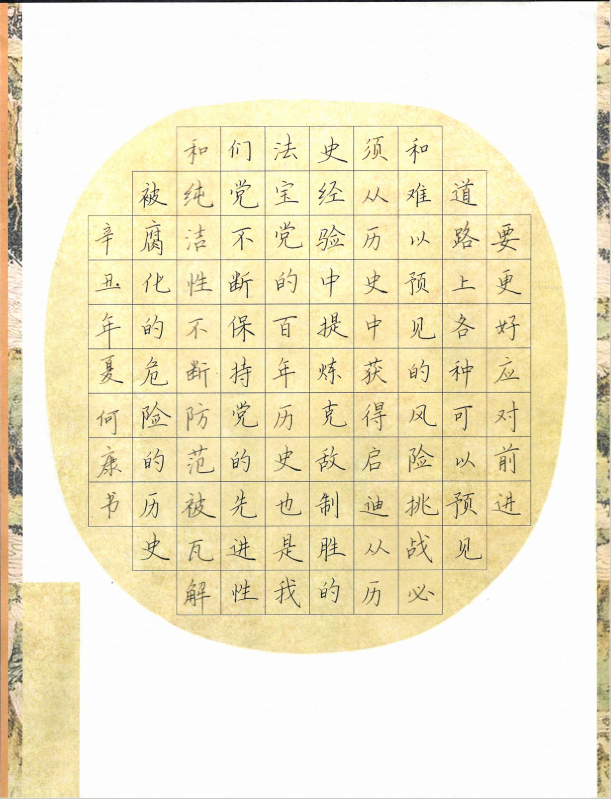 要更好应对前进
道路上各种可以预见
和难以预见的风险挑战必
须从历史中获得启迪从历
史经验中提炼克敌制胜的
法宝党的百年历史也是我
们党不断保持党的先进性
和纯洁性不断防范被瓦解
被腐化的危险的历史
辛丑年夏何康书